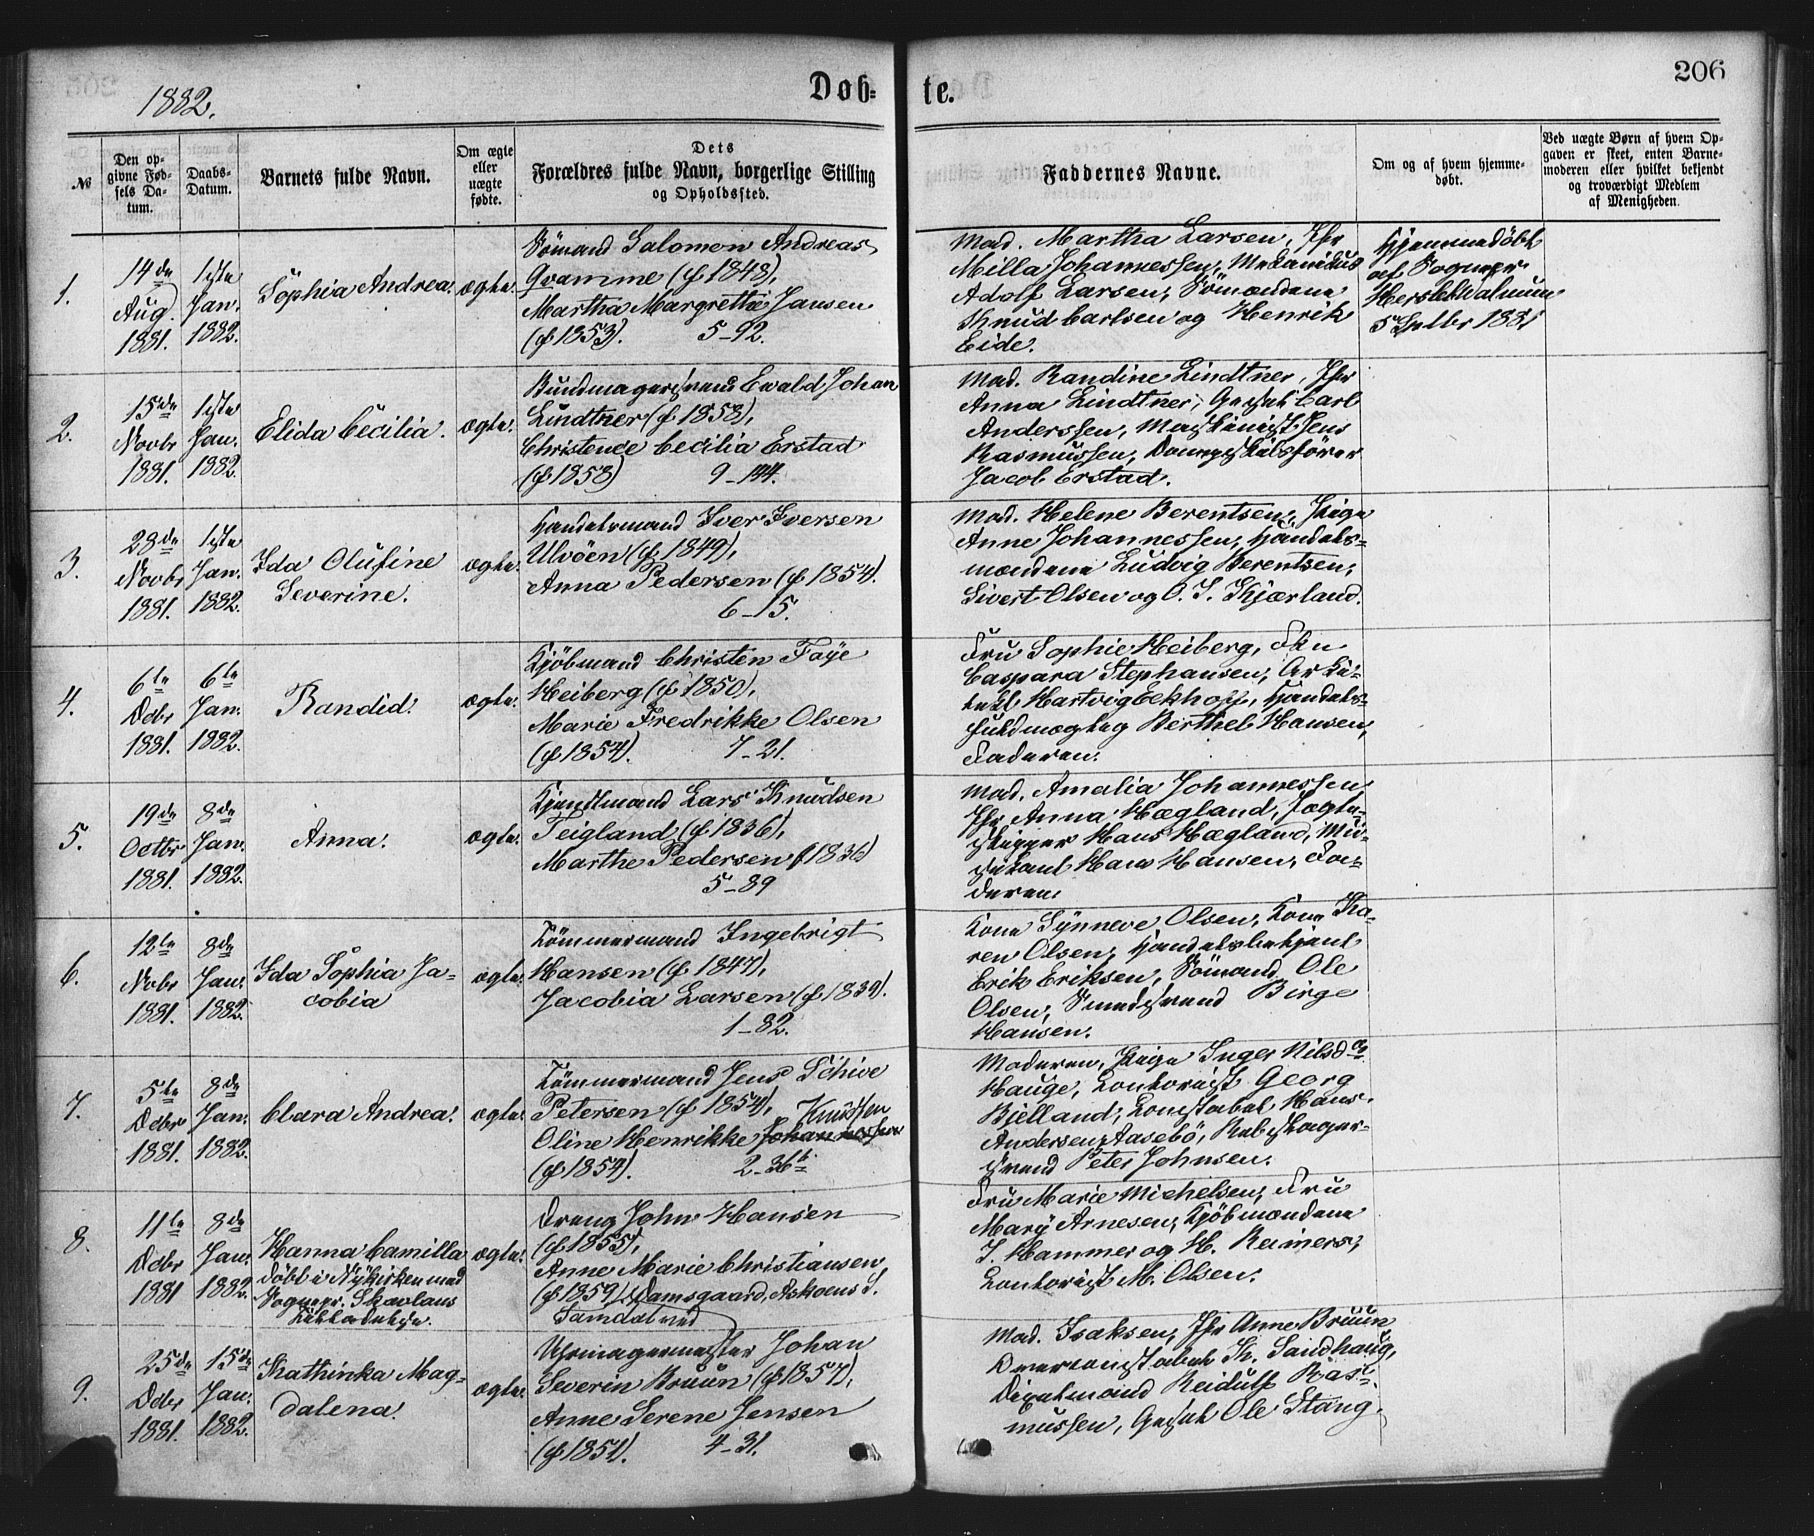 1882.
Døb-
te.
206
№
Den op-
givne Fød-
sels Da-
tum.
Daabs-
Datum.
Barnets fulde Navn.
Om ægte
eller
uægte
fødte.
Dets
Forældres fulde Navn, borgerlige Stilling
og Opholdssted.
Faddernes Navne.
Om og af hvem hjemme-
døbt.
Ved uægte Børn af hvem Op-
gaven er skeet, enten Barne-
moderen eller hvilket bekjendt
og troværdigt Medlem
af Menigheden.
1.
14de
Aug.
1881.
1ste
Jan.
1882.
Sophia Andrea.
ægte.
Sömand Salomon Andreas
Qvamme (f 1848),
Martha Margrethe Jansen
(f 1853). 5-92.
Mad. Martha Larsen, Jfr
Milla Johannessen, Mekanikus
Adolf Larsen, Sömændene
Knud Carlsen og Henrik
Eide.
Hjemmedöbt
af Sognepr.
Hersleb Walnum
5 Septbr 1881
2.
15de
Novbr
1881.
1ste
Jan.
1882.
Elida Cecilia.
ægte.
Bundmagersvend Ewald Johan
Lindtner (f 1858),
Christence Cecilia Erstad
(f 1858) 9-144.
Mad. Randine Lindtner, Jfr
Anna Lindtner, Gesel Carl
Anderssen, Maskinist Jens
Rasmussen, Dampskibsförer
Jacob Erstad.
3.
28de
Novbr
1881.
1ste
Jan.
1882.
Ida Olufine
Severine.
ægte.
Handelsmand Iver Iversen
Ulvöen (f 1849),
Anna Pedersen (f 1854).
6-15.
Mad. Helene Berentsen, Pige
Anne Johannessen, Handels-
mændene Ludvig Berentsen,
Sivert Olsen og O. I. Kjærland.
4.
6te
Dcbr
1881.
6te
Jan.
1882.
Randid.
ægte.
Kjöbmand Christen Faye
Heiberg (f 1850),
Marie Fredrikke Olsen
(f 1854). 7-21.
Fru Sophie Heiberg, Fkn
Caspara Stephansen, Arki-
tekt Hartvig Eckhoff, Handels-
fuldmægtig Berthel Hansen,
Faderen.
5.
19de
Octbr
1881.
8de
Jan.
1882.
Anna.
ægte.
Kjendtmand Lars Knudsen
Teigland (f 1836),
Marthe Pedersen (f 1836)
5-89
Mad. Amalia Johannessen
Jfr Anna Hægland, Jægte-
skipper Hans Hægland, Mu-
sikant Hans Hansen, Fa-
deren.
6.
12te
Nvbr
1881.
8de
Jan.
1882.
Ida Sophia Ja-
cobia
ægte.
Tömmermand Ingebrigt
Hansen (f 1847),
Jacobia Larsen (f 1839).
1-82.
Kone Synneve Olsen, Kone Ka-
ren Olsen, Handelsbetjent
Erik Eriksen, Sömand Ole
Olsen, Smedsvend Birge
Hansen.
7.
5te
Dcbr
1881.
8de
Jan.
1882.
Clara Andrea.
ægte.
Tömmermand Jens Schive
Petersen (f 1854), Knudsen
Oline Henrikke Johannessen
(f 1854). 2-36b
Moderen, Pige Inger Nilsdr
Hauge, Contorist Georg
Bjelland, Constabel Hans
Andersen Aasebö, Rebslager-
svend Peter Johnsen.
8.
11te
Dcbr
1881
8de
Jan.
1882.
Hanna Camilla
döbt i Nykirken med
Sognepr. Skavlans
Tilladelse.
ægte.
Dreng John Hansen
(f 1855),
Anne Marie Christiansen,
(f 1859) Damsgaard, Askoens S.
Samdal ved
Fru Marie Michelsen, Fru
Mary Arnesen, Kjöbmændene
J. Hammer og H. Reimers,
Contorist M. Olsen.
9.
25de
Dcbr
1881.
15de
Jan.
1882.
Kathinka Mag-
dalena.
ægte.
Uhrmagermester Johan
Severin Bruun (f 1857),
Anne Serene Jensen
(f 1851). 4-31.
Mad. Isaksen, Jfr Anne Bruun
Overconstabel Th. Sandhaug,
Politimand Reidulf Ras-
mussen, Gesel Ole Stang.